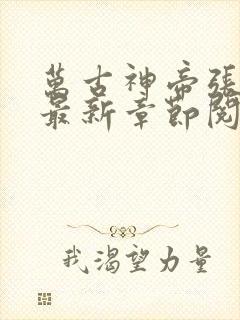 萬古神帝張
最新章節閱
我渴望力量